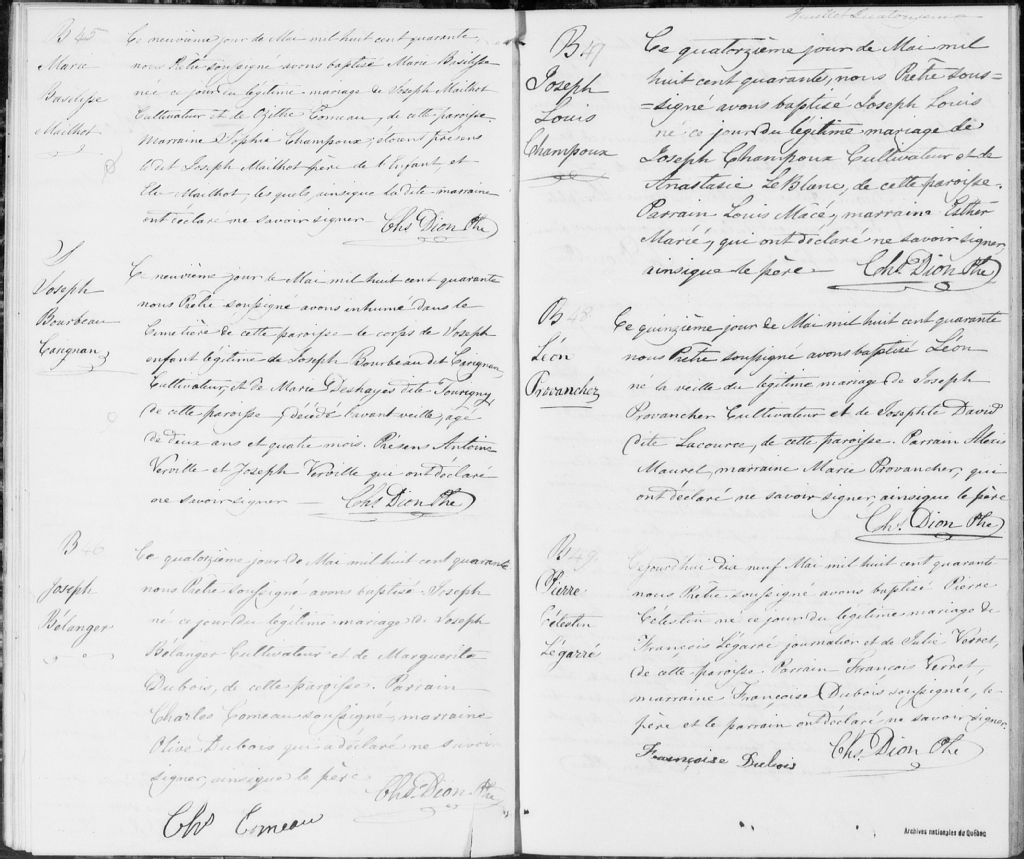 B 45
Marie
Basilisse
Mailhot
Ce neuvième jour de Mai mil huit cent quarante,
nous Prêtre soussigné avons baptisé Marie Basilisse
née ce jour du légitime mariage de Joseph Mailhot
Cultivateur et de Ozithe Comeau, de cette paroisse.
Marraine Sophie Champoux; étant présens
ledit Joseph Mailhot père de l'enfant, et
Mailhot, lesquels, ainsique la dite marraine
ont déclaré ne savoir signer. Chs. Dion Ptre
S
Joseph
Bourbeau
Carignan
Ce neuvième jour de Mai mil huit cent quarante
nous Prêtre soussigné avons inhumé dans le
Cimetière de cette paroisse le corps de Joseph
enfant légitime de Joseph Bourbeau dit Carignan,
Cultivateur, et de Marie Deshayes dite Tourigny,
de cette paroisse, décédé l'avant veille, agé
de deux ans et quatre mois. Présens Antoine
Verville et Joseph Verville qui ont déclaré
ne savoir signer — Chs. Dion Ptre
B 46
Joseph
Bélanger
Ce quatorzième jour de Mai mil huit cent quarante
nous Prêtre soussigné avons baptisé Joseph
né ce jour du légitime mariage de Joseph
Bélanger Cultivateur et de Marguerite
Dubois, de cette paroisse. Parrain
Charles Comeau soussigné, marraine
Olive Dubois qui a déclaré ne savoir
signer, ainsique le père. Chs. Dion Ptre
Chs Comeau
Feuillet Quatorzieme
B 47
Joseph
Louis
Champoux
Ce quatorzième jour de Mai mil
huit cent quarante, nous Prêtre sous=
=signé avons baptisé Joseph Louis
né ce jour du légitime mariage de
Joseph Champoux Cultivateur et de
Anastasie LeBlanc, de cette paroisse.
Parrain Louis Macé, marraine Esther
Marié, qui ont déclaré ne savoir signer,
ainsique le père — Chs. Dion Ptre
B 48
Léon
Provancher
Ce quinzième jour de Mai mil huit cent quarante
nous Prêtre soussigné avons baptisé Léon
né la veille du légitime mariage de Joseph
Provancher Cultivateur et de Josephte David
dite Lacource, de cette paroisse. Parrain Alexis
Mauret, marraine Marie Provancher, qui
ont déclaré ne savoir signer ainsique le père
Chs. Dion Ptre
B 49
Pierre
Célestin
Légarré
Cejourd'hui dix neuf Mai mil huit cent quarante
nous Prêtre soussigné avons baptisé Pierre
Célestin né ce jour du légitime mariage de
François Légarré journalier et de Julie Verret,
de cette paroisse. Parrain François Verret,
marraine Françoise Dubois soussignée, le
père et le parrain ont déclaré ne savoir signer.
Françoise Dubois Chs. Dion Ptre
Archives nationales du Québec